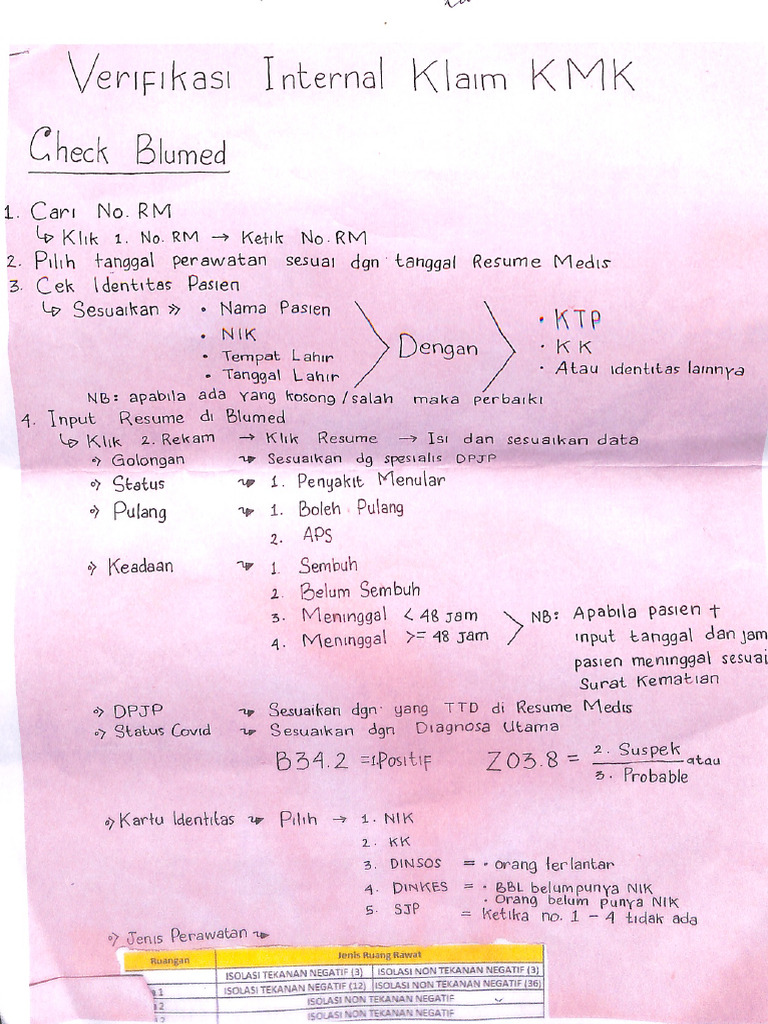 Verifikasi Internal Klaim KMK
Check Blumed
1. Cari No. RM
↳ Klik 1. No. RM → Ketik No. RM
2. Pilih tanggal perawatan sesuai dgn tanggal Resume Medis
3. Cek Identitas Pasien
↳ Sesuaikan >> • Nama Pasien
• NIK
• Tempat Lahir
• Tanggal Lahir
Dengan
• KTP
• KK
• Atau identitas lainnya
NB: apabila ada yang kosong/salah maka perbaiki
4. Input Resume di Blumed
↳ Klik 2. Rekam → Klik Resume → Isi dan sesuaikan data
Golongan Sesuaikan dg spesialis DPJP
Status 1. Penyakit Menular
Pulang 1. Boleh Pulang
2. APS
Keadaan 1. Sembuh
2. Belum Sembuh
3. Meninggal < 48 jam
4. Meninggal >= 48 jam
NB: Apabila pasien †
input tanggal dan jam
pasien meninggal sesuai
Surat Kematian
DPJP Sesuaikan dgn yang TTD di Resume Medis
Status Covid Sesuaikan dgn Diagnosa Utama
B34.2 = 1. Positif Z03.8 = 2. Suspek atau
3. Probable
Kartu Identitas Pilih → 1. NIK
2. KK
3. DINSOS = • orang terlantar
4. DINKES = • BBL belum punya NIK
• Orang belum punya NIK
5. SJP = Ketika no. 1 – 4 tidak ada
Jenis Perawatan
Ruangan Jenis Ruang Rawat
ISOLASI TEKANAN NEGATIF (3) ISOLASI NON TEKANAN NEGATIF (3)
1 ISOLASI TEKANAN NEGATIF (12) ISOLASI NON TEKANAN NEGATIF (36)
2 ISOLASI NON TEKANAN NEGATIF
ISOLASI NON TEKANAN NEGATIF